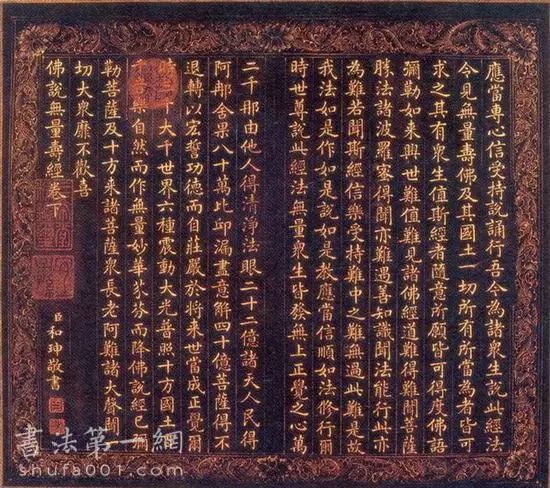 應當專心信受持說誦行吾今為諸衆生說此經法
今見無量壽佛及其國土一切所有所當為者皆可
求之其有衆生值斯經者隨意所願皆可得度佛語
彌勒如來興世難值難見諸佛經道難得難聞菩薩
勝法諸波羅蜜得聞亦難遇善知識聞法能行此亦
為難若聞斯經信樂受持難中之難無過此難是故
我法如是作如是說如是教應當信順如法修行爾
時世尊說此經法無量衆生皆發無上正覺之心萬
二千那由他人得清淨法眼二十二億諸天人民得
阿那含果八十萬比丘漏盡意解四十億菩薩得不
退轉以宏誓功德而自莊嚴於將來世當成正覺爾
時千大千世界六種震動大光普照十方國土
自然而作無量妙華芬芬而降佛說經已彌
勒菩薩及十方來諸菩薩衆長老阿難諸大聲聞一
切大衆靡不歡喜
佛說無量壽經卷下
臣和珅敬書
書法第一網
shufa001.com